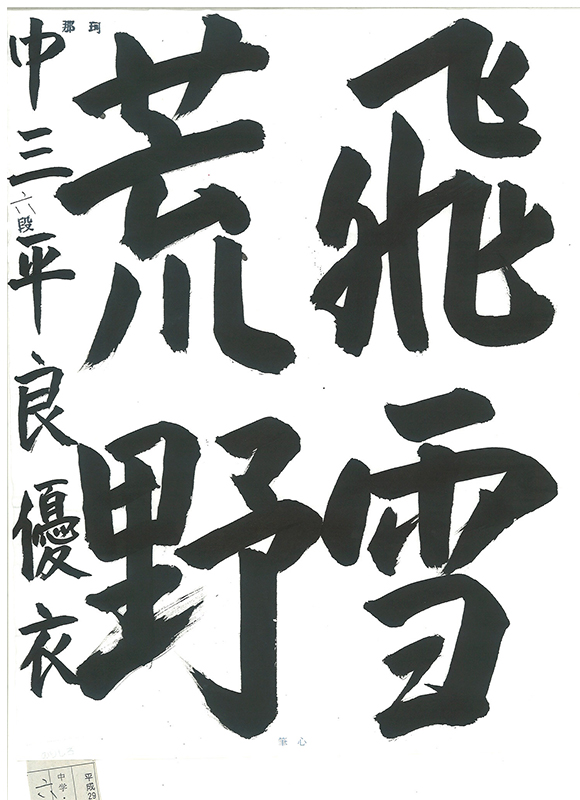 飛雪
荒野
中三六段平良優衣
珂那
心筆
平成29
中学・
六